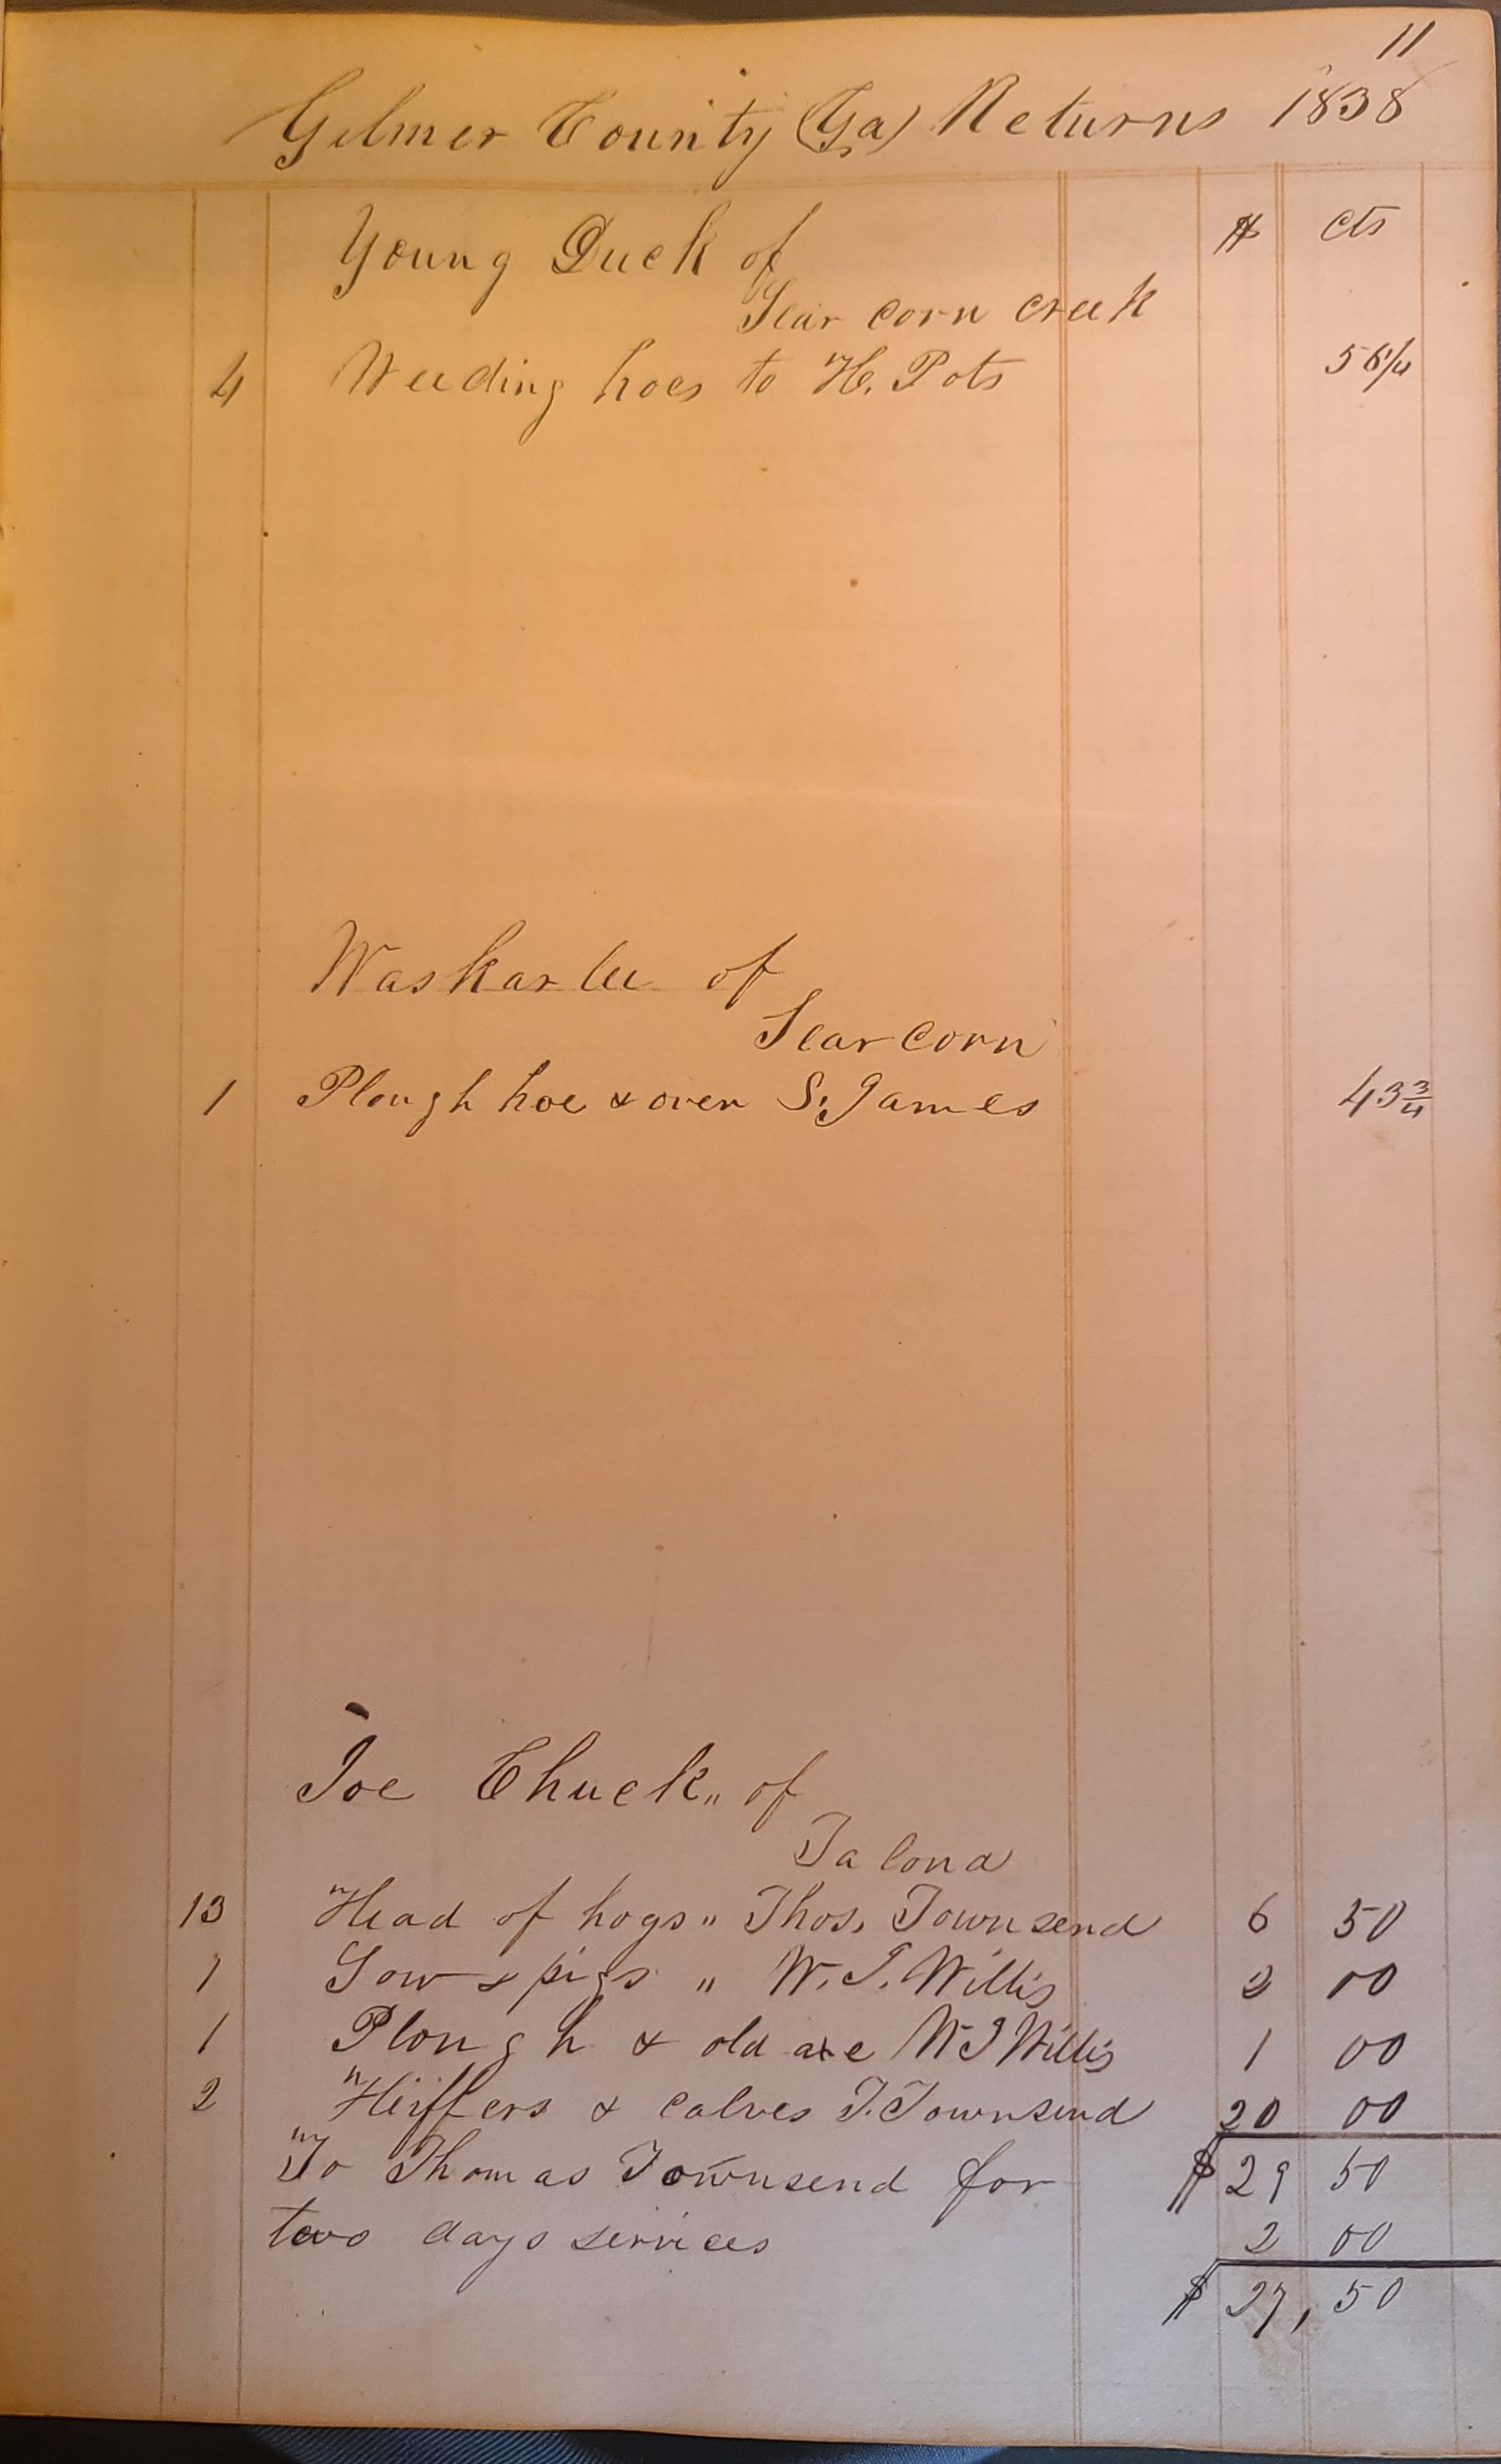 11
Gilmer County (Ga) Returns 1838
Young Duck of $ cts
Scarcorn creek
4 Weeding hoes to H. Pots 56 1/4
Waskarlee of
Scarcorn
1 Plough hoe & oven S. James 43 3/4
Joe Chuck " of
Talona
13 Head of hogs " Thos. Townsend 6 50
1 Sow & pigs " W. J. Willis 2 00
1 Plough & old axe W J Willis 1 00
2 Heiffers & calves T. Townsend 20 00
To Thomas Townsend for $ 29 50
two days services 2 00
$ 27, 50